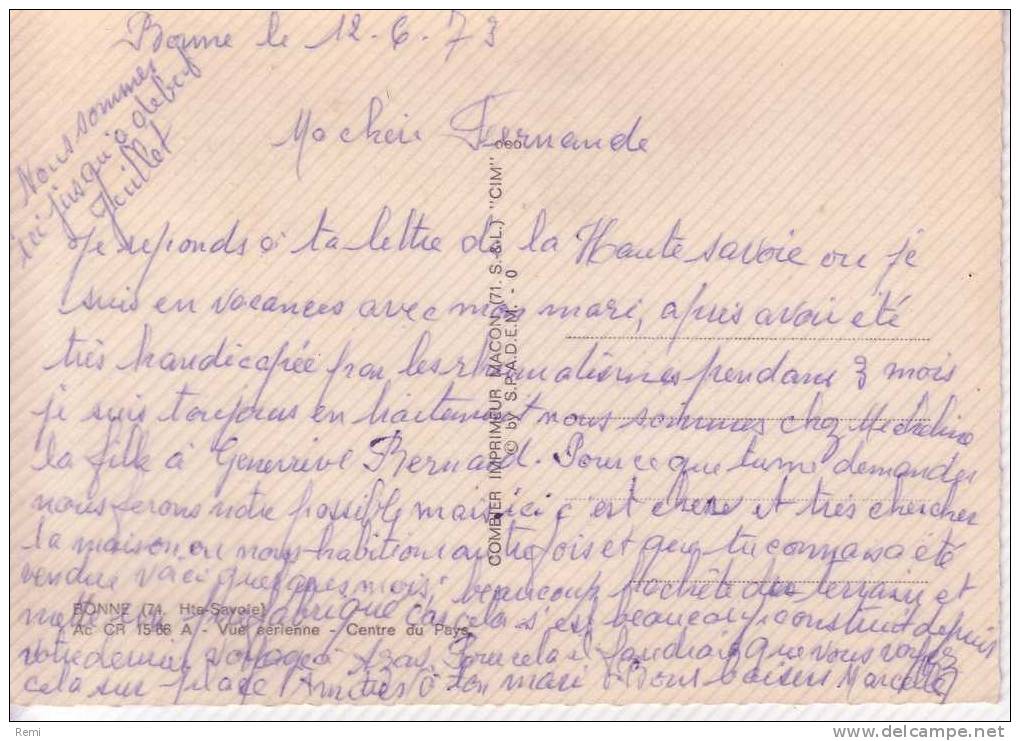 Bonne le 12-6-73
Nous sommes
ici jusqu'à debut
Juillet
Ma chère Fernande
Je reponds à ta lettre de la Haute savoie ou je
suis en vacances avec mon mari, apres avoir été
très handicapée par les rhumatismes pendant 3 mois
je suis toujours en traitement nous sommes chez Micheline
la fille à Genevieve Bernard. Pour ce que tu me demandes
nous ferons notre possible mais ici c'est chere et très chercher
la maison ou nous habitions autrefois et que tu connais a été
vendue voici quelques mois, beaucoup achète du terrain et
mette en car cela s'est beaucoup construit depuis
votre dernier voyage à Pour cela il faudrait que vous voyez
cela sur place Amitiés à ton mari Bons baisers Marcelle
BONNE (74. Hte-Savoie)
Ac CR 15-86 A - Vue aérienne - Centre du Pays
COMBIER IMPRIMEUR MACON (71. S.-&L.) "CIM"
© by S.P.A.D.E.M. - 0
Remi
www.delcampe.net